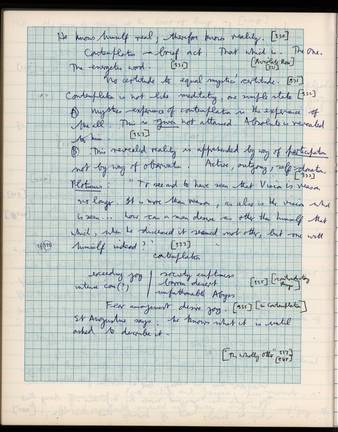 He knows himself real, & therefore knows reality. [330]
Contemplation - a brief act That which is. The One.
The energetic word. [331]
No certitude to equal mystics' certitude. [331]
Contemplation is not like meditation, one simple state [331]
A) Mystic experience of contemplation is the experience of
the all. This is given not attained. Absolute is revealed
to him [332]
B) This revealed reality is apprehended by way of participation
not by way of observation. Active, outgoing, self-donation
[333]
Plotinus: "To see and to have seen that Vision is reason
no longer. It is more than reason, as also is the vision which
is seen... the himself that
which, when he discerned it seemed not other, but one with
himself indeed?" [333]
contemplation
exceeding joy society emptiness
intense barren desert
unfathomable Abyss
Fear amazement desire joy. [in contemplation]
St Augustine says: he knows what it is until
asked to describe it.
["The wholly other"